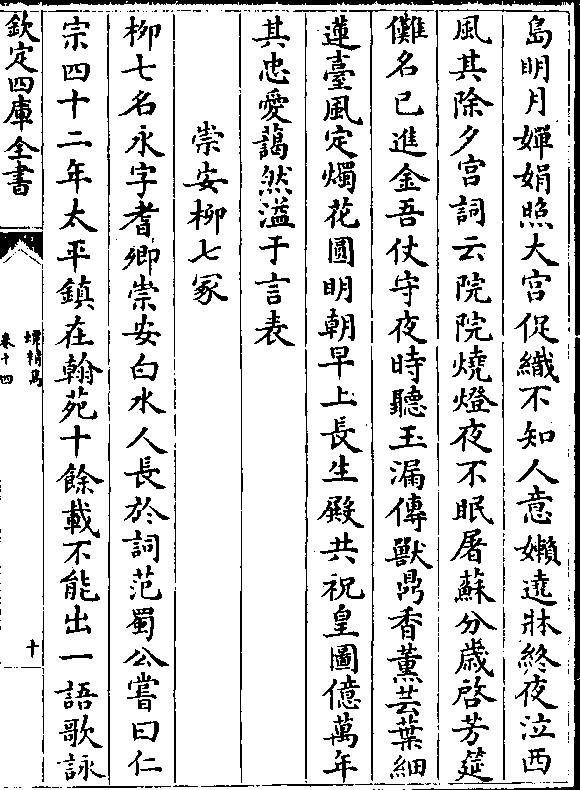 島明月嬋娟照大宮促織不知人意嬾遶牀終夜泣西
風其除夕宮詞云院院燒燈夜不眠屠蘇分歳啓芳筵
儺名已進金吾仗守夜時聽玉漏傳獸鼎香薰芸葉細
蓮臺風定燭花圓明朝早上長生殿共祝皇圖億萬年
其忠愛藹然溢于言表
崇安柳七冢
柳七名永字耆卿崇安白水人長於詞范蜀公嘗曰仁
宗四十二年太平鎮在翰苑十餘載不能出一語歌詠
欽定四庫全書
卷十四
十